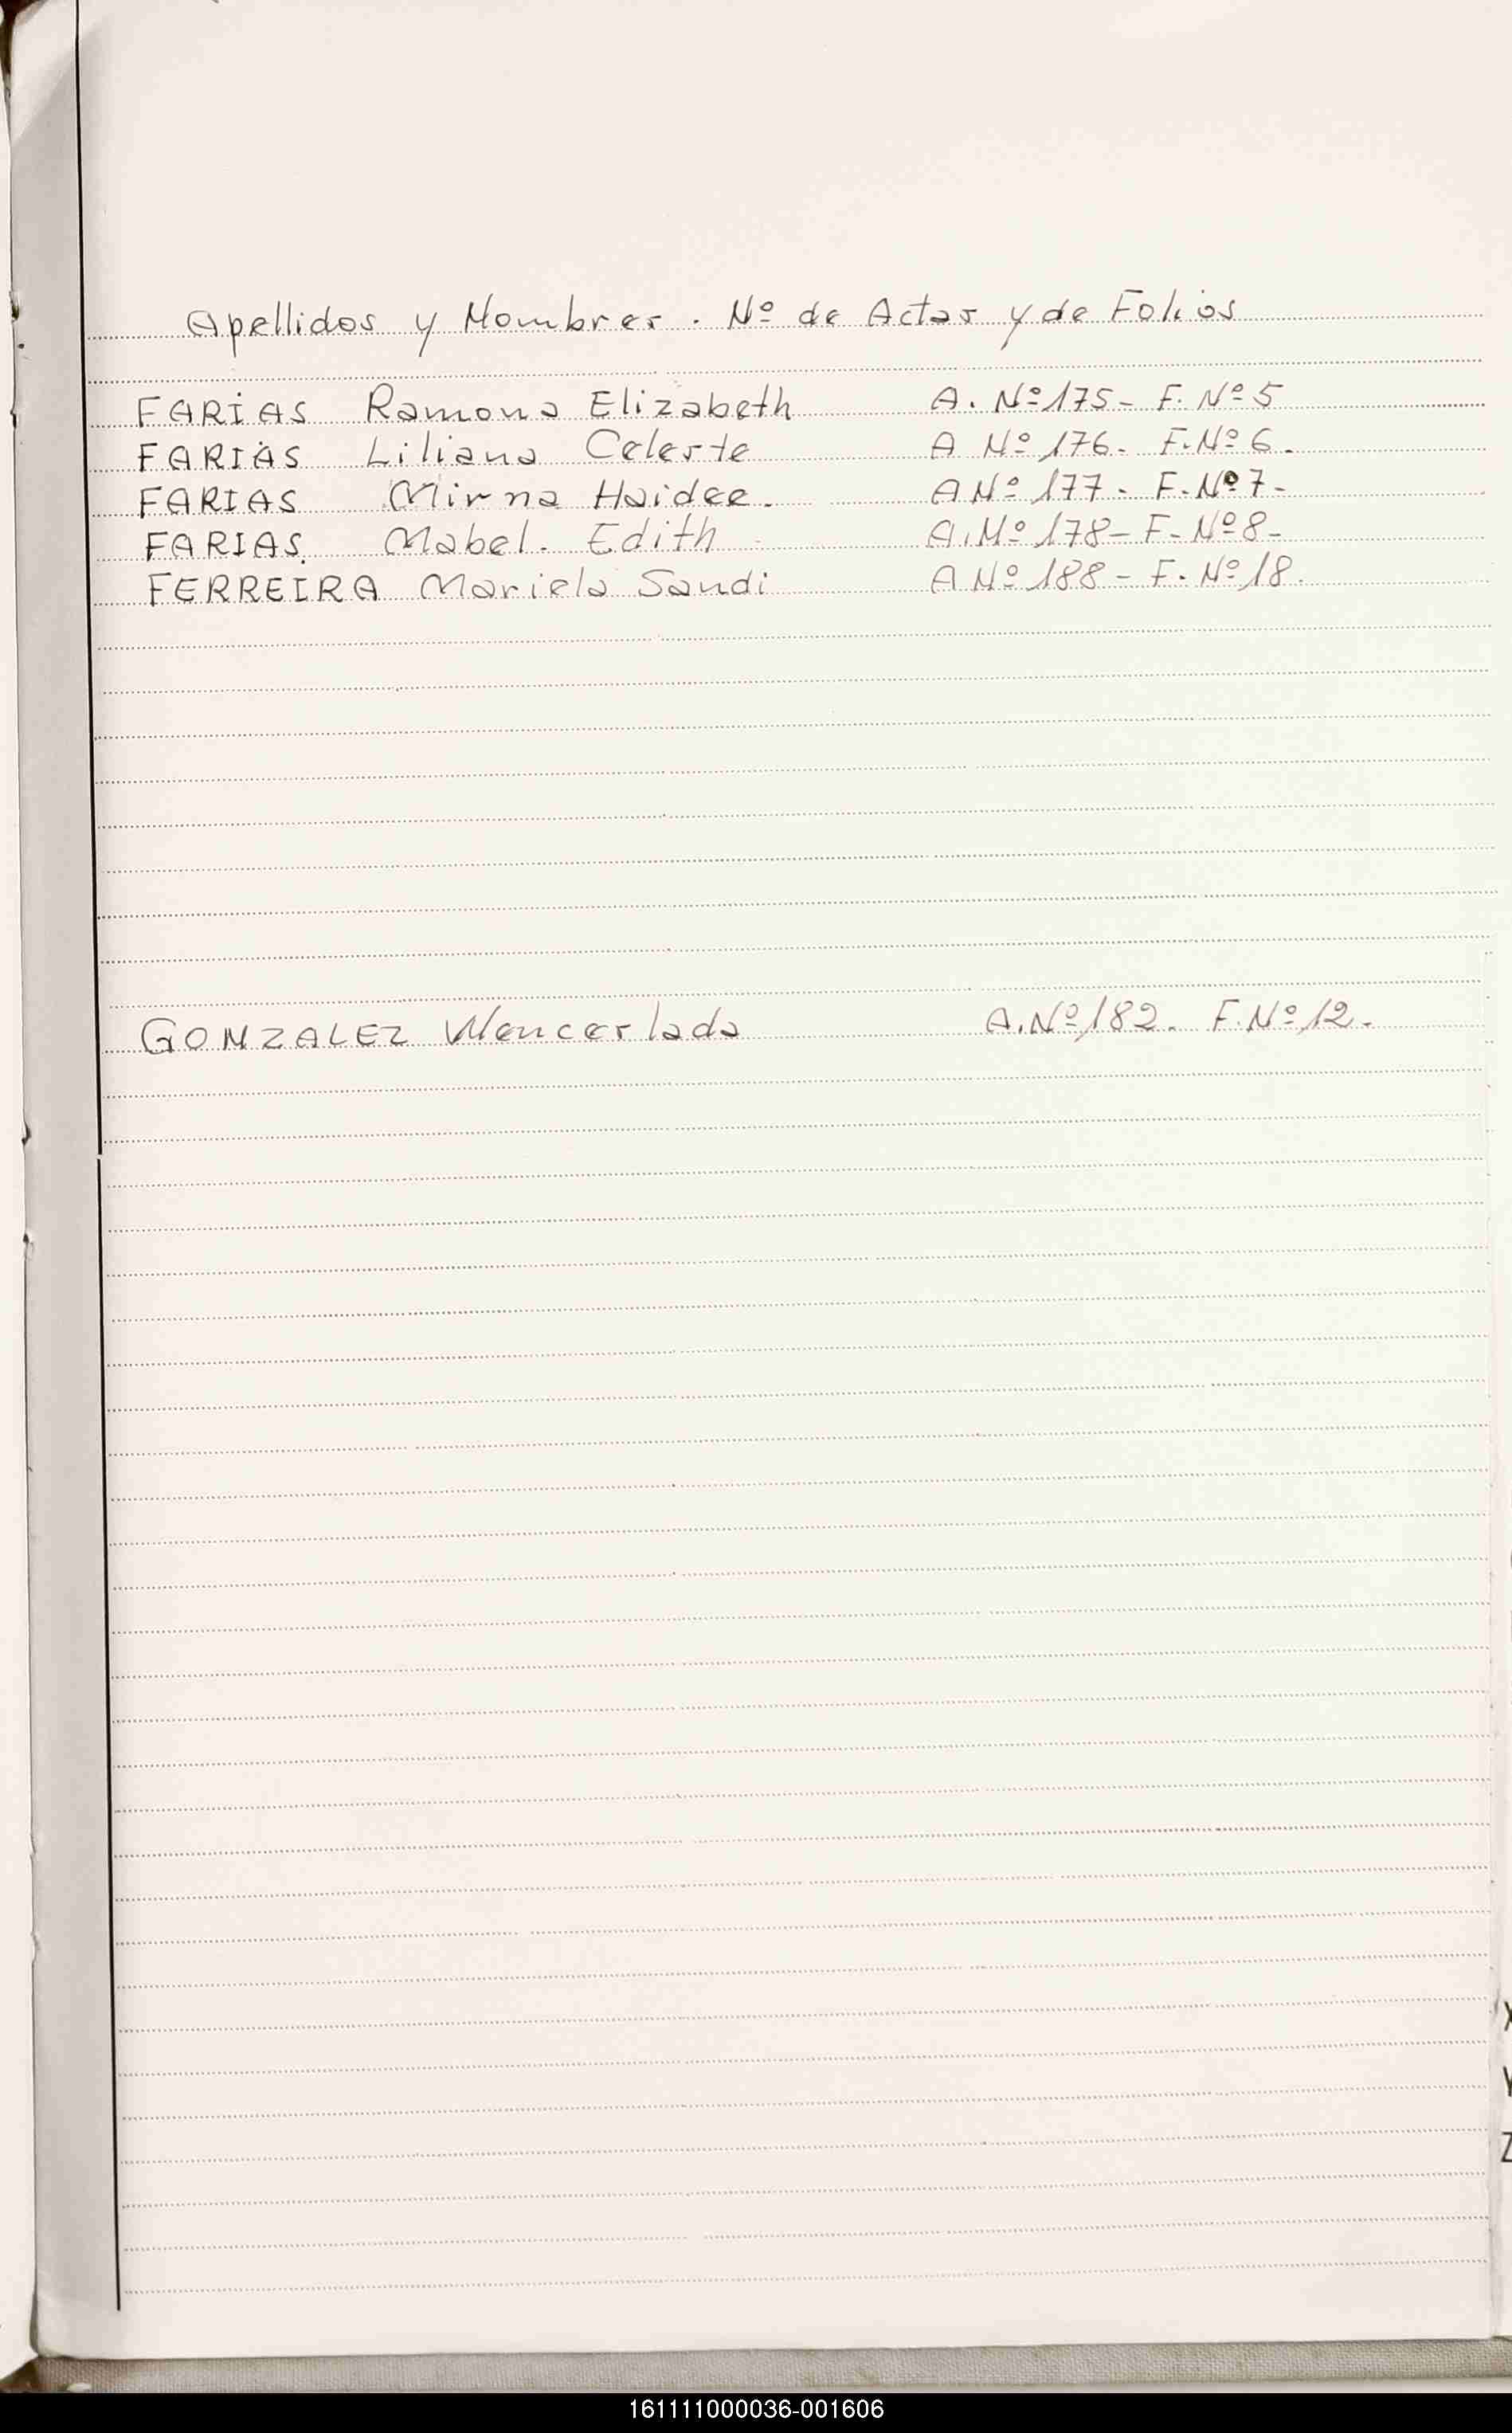 Apellidos y Nombres. Nº de Actas y de Folios
FARIAS Ramona Elizabeth A. Nº 175- F. Nº 5
FARIAS Liliana Celeste A Nº 176- F. Nº 6.
FARIAS Mirna Haidee. A Nº 177- F. Nº 7-
FARIAS Mabel. Edith A. Nº 178- F- Nº 8-
FERREIRA Mariela Sandi A Nº 188- F. Nº 18.
GONZALEZ Wenceslada A. Nº 182. F. Nº 12.
Z
161111000036-001606